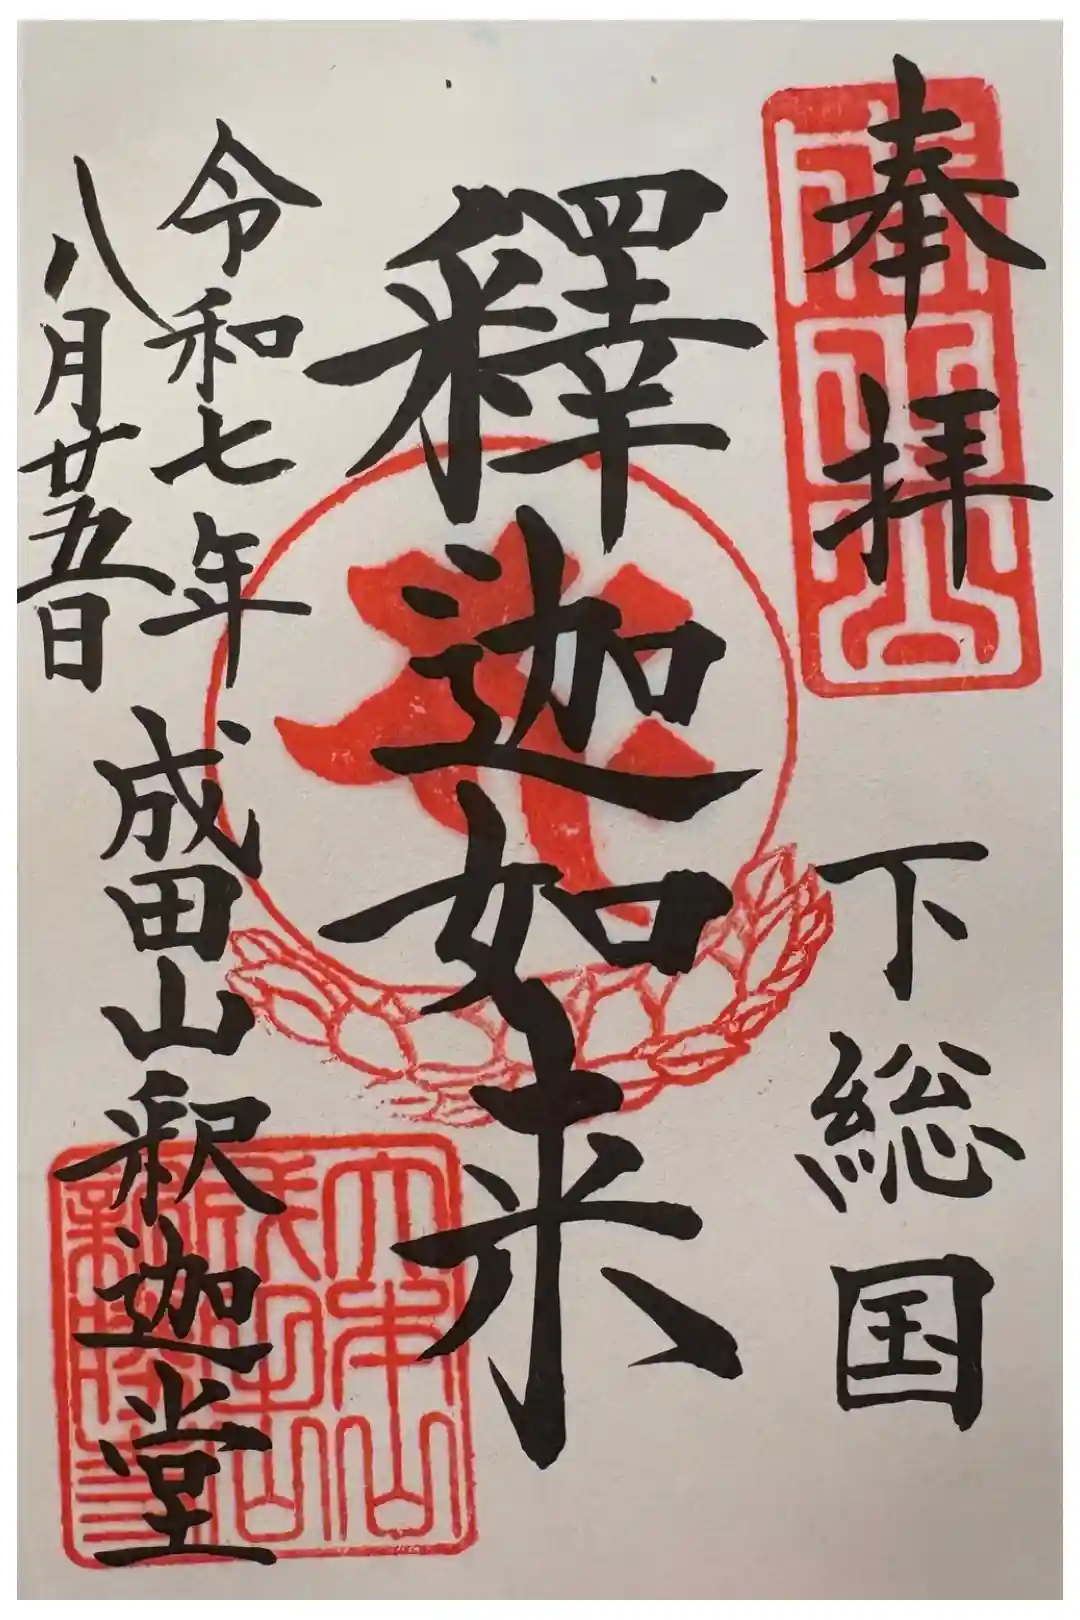 奉拝
下総国
釋迦如来
令和七年
八月廿五日
成田山釈迦堂